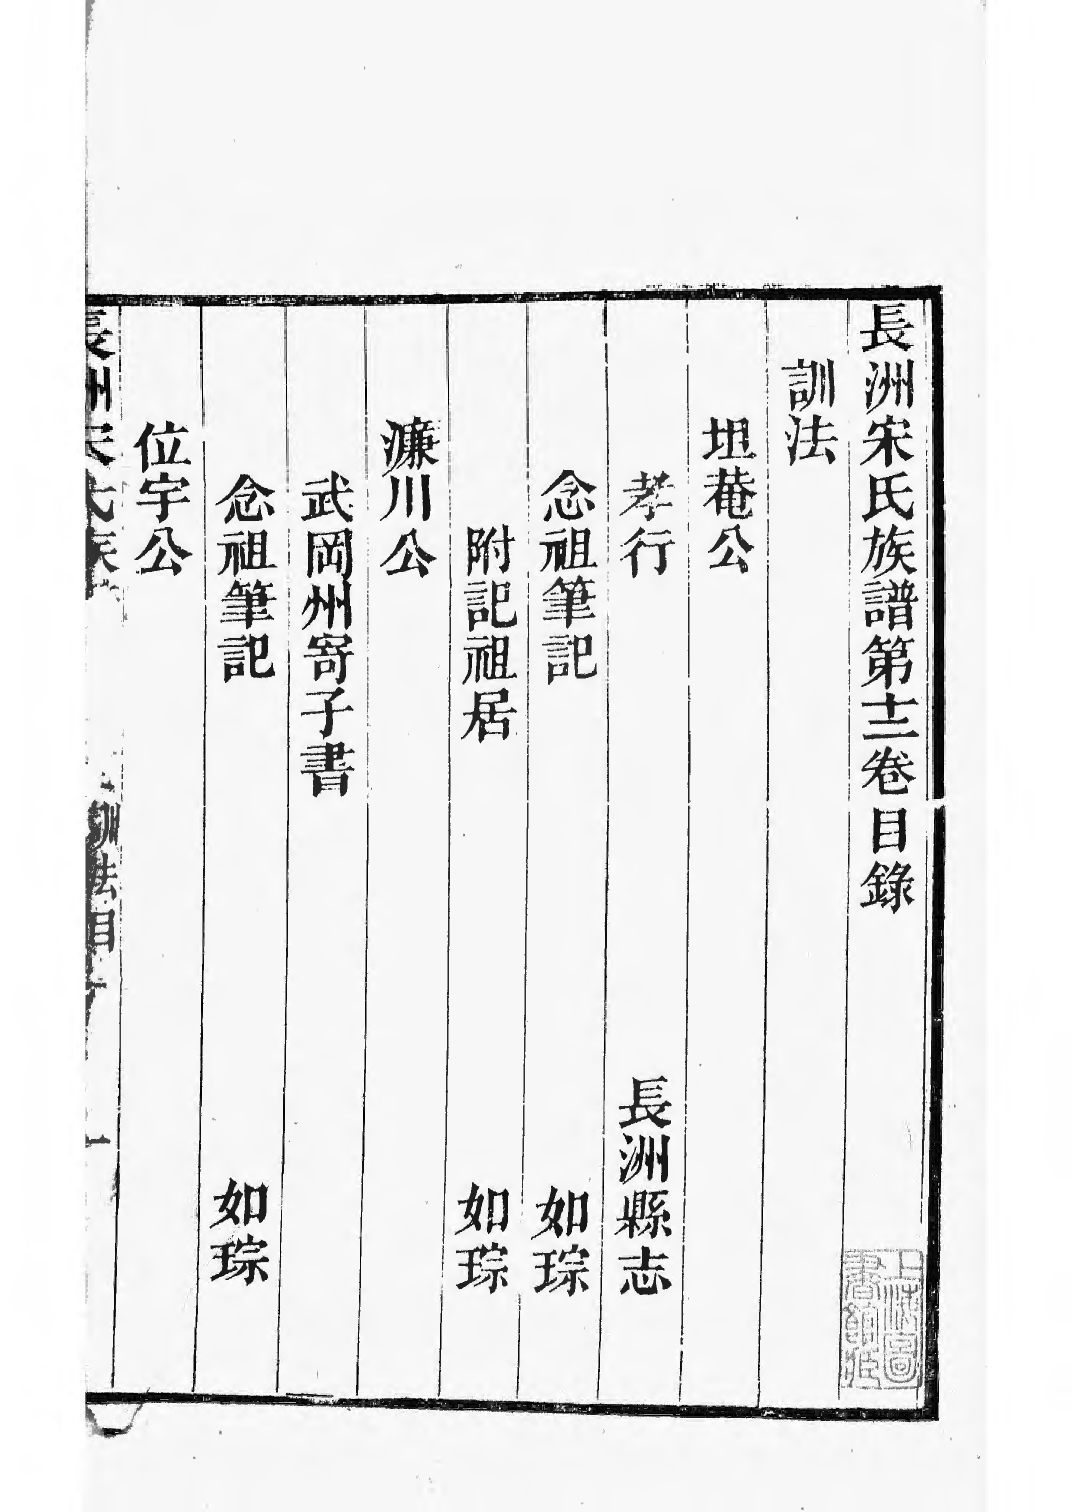 長洲宋氏族譜第十二卷目錄
訓法
坦菴公
孝行 長洲縣志
念祖筆記 如琮
附記祖居 如琮
濂川公
武岡州寄子書
念祖筆記 如琮
位宇公
長洲宋氏族
訓法目
一
上海圖書館藏